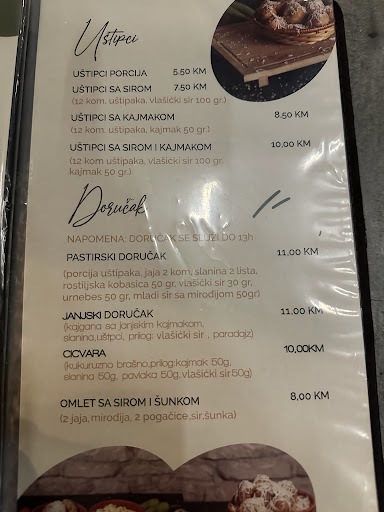 Uštipci
UŠTIPCI PORCIJA 5.50 KM
UŠTIPCI SA SIROM 7.50 KM
(12 kom. uštipaka, vlašićki sir 100 gr.)
UŠTIPCI SA KAJMAKOM 8.50 KM
(12 kom. uštipaka, kajmak 50 gr.)
UŠTIPCI SA SIROM I KAJMAKOM 10,00 KM
(12 kom uštipaka, vlašićki sir 100 gr.
kajmak 50 gr.)
Doručak
NAPOMENA: DORUČAK SE SLUŽI DO 13h
PASTIRSKI DORUČAK 11,00 KM
(porcija uštipaka, jaja 2 kom, slanina 2 lista,
roštiljska kobasica 50 gr, vlašićki sir 30 gr,
urnebes 50 gr, mladi sir sa mirodijom 50gr)
JANJSKI DORUČAK 11.00 KM
(kajgana sa janjskim kajmakom,
slanina,uštpci, prilog: vlašićki sir , paradajz)
CICVARA 10,00KM
(kukuruzno brašno,prilog:kajmak 50g,
slanina 50g, pavlaka 50g,vlašićki sir50g)
OMLET SA SIROM I ŠUNKOM 8,00 KM
(2 jaja, mirodija, 2 pogačice,sir,šunka)